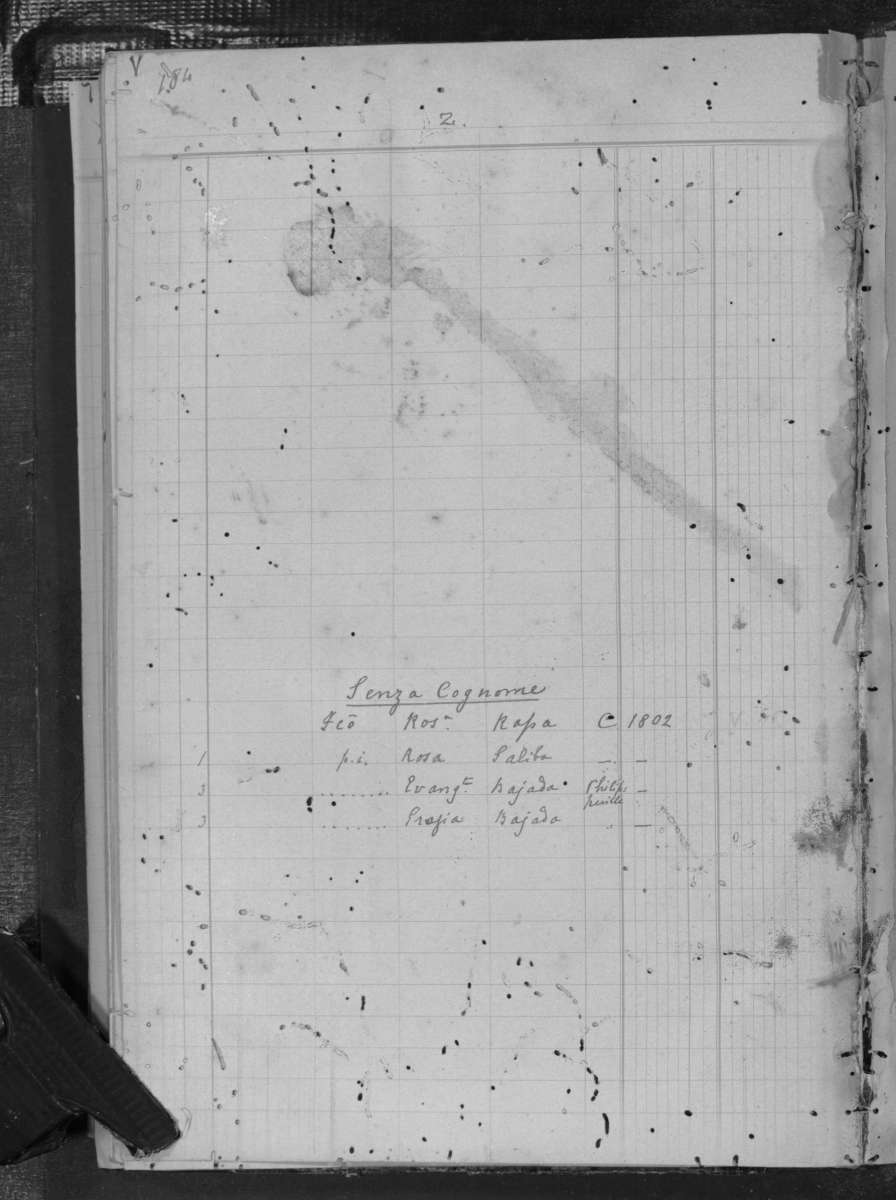 184
Z.
Senza Cognome
Fcō Rosa. Rapa C 1802
1 p.i. Rosa Saliba — —
3 ........ Evangta. Bajada Philip- —
peville
3 ....... Grazia Bajada " —